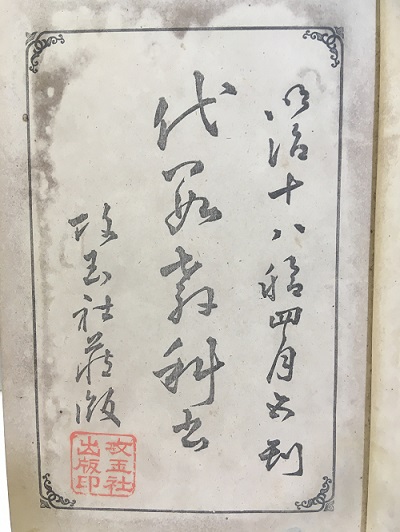 明治十八稔四月刻
代數敎科書
攻玉社蔵版
攻玉社
出版印